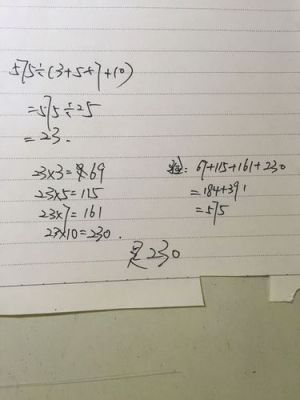 575÷(3+5+7+10)
=575÷25
=23.
23×3=69
23×5=115
23×7=161
23×10=230.
验: 69+115+161+230
=184+391
=575
是230